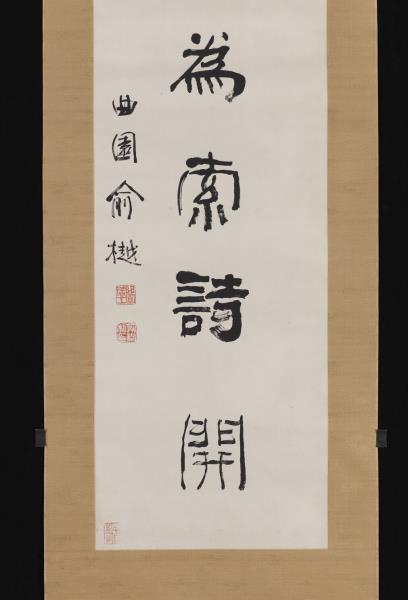 為索詩開
曲園俞樾